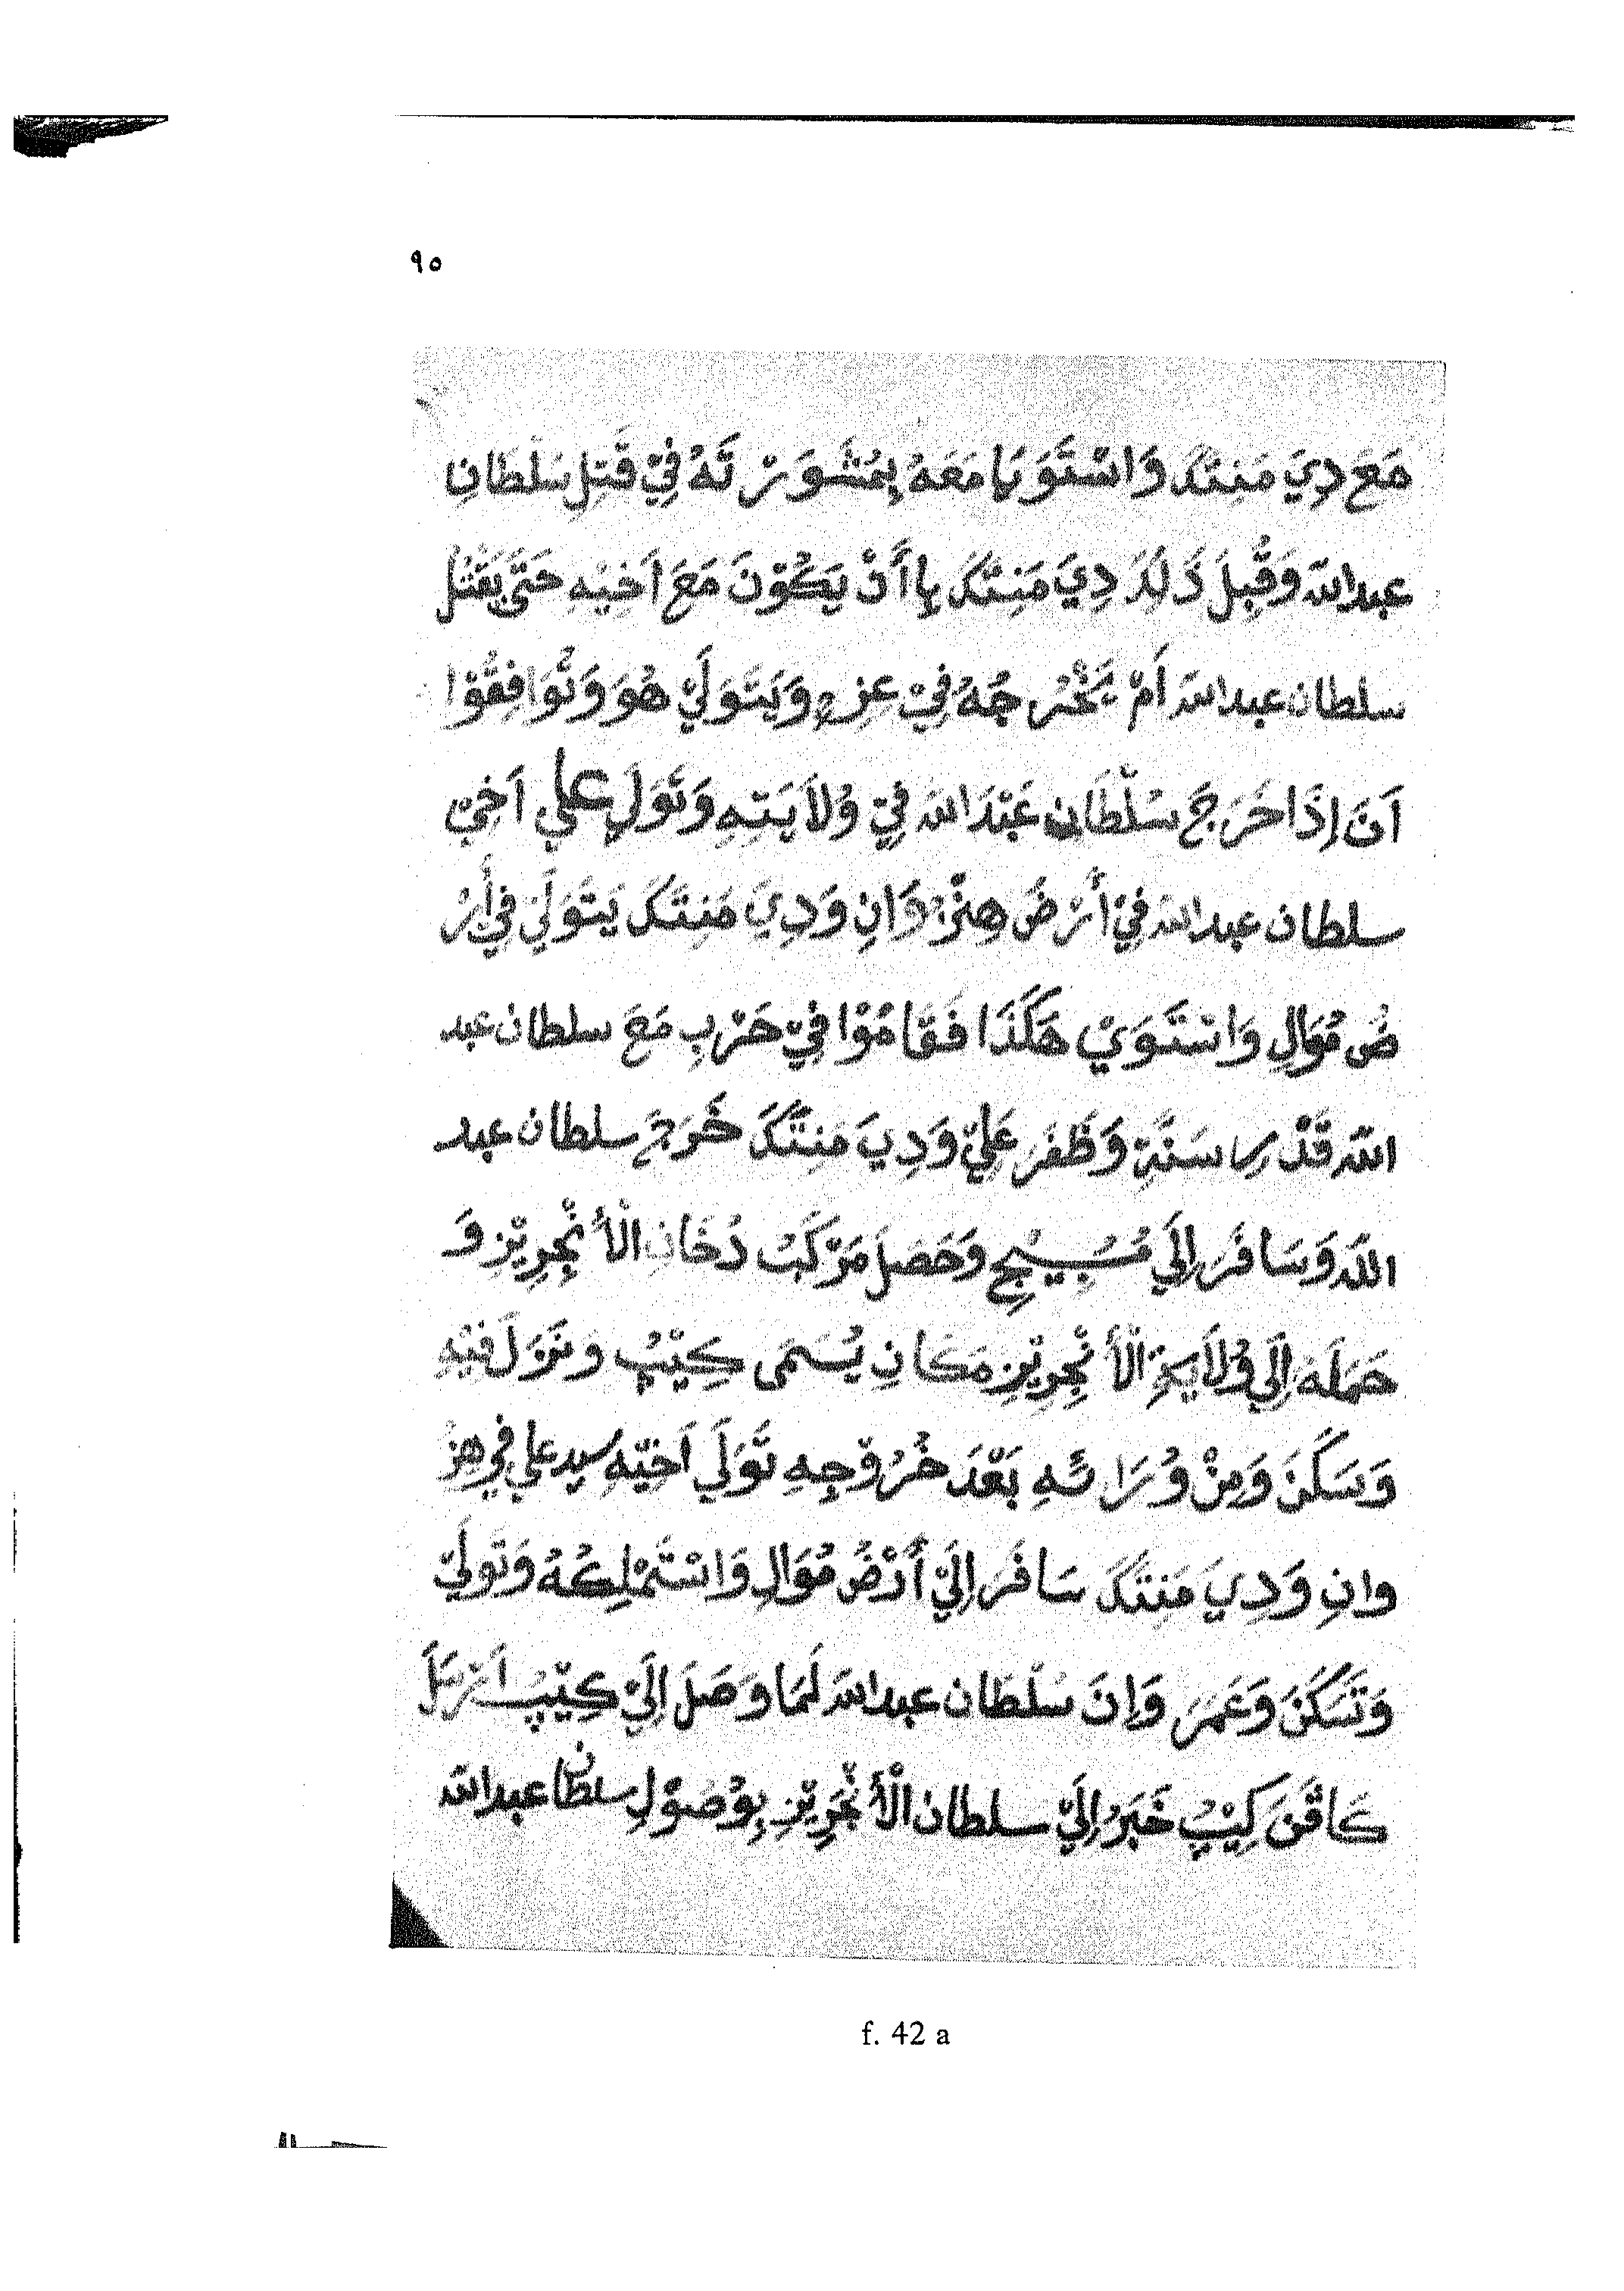 ٩٥
مَعَ دِيَ مَنِتْكَ وَاسْتَوَيَا مَعَهُ بِمُشَوَرْ تَهُ فِيْ قَتِلِ سَلْطَانِ
عبدالله وَقُبِلَ ذَلِكَ دِيَ مَنِتْكَ بِاأَنْ يَكُوْنَ مَعَ اَخِيْهِ حَتَّى يَقْتُلُ
سلطان عبدالله اَمْ يَخْرُجُهُ فِيْ عِزِهِ وَيَتَوَلَيْ هُوَ وَتُوَافِقُوْا
اَنَ اِذَا خَرَجَ سُلْطَان عَبْدَ الله فِيْ وُلاَيَتِهِ وَتَوَلِ علي اَخِيْ
سلطان عبدالله فِيْ أَرْضَ هِنْزُوَانِ وَدِيَ مَنِتَكَ يَتَوَلَيْ فِيْ أَرْ
ضُ مُوَالِ وَاسْتَوَيْ هَكَذَا فَقَامُوْا فِيْ حَرْبِ مَعَ سلطان عبد
الله قَدْرِ سَنَةِ وَظَفَرَ عَلِيْ وَدِيَ مَنِتْكَ خَرَجَ سلطان عبد
الله وَسَافَرَ اِلَيْ مُسُبِيْجِ وَحَصَلَ مَرْكَبُ دُخَانِ الْأَنْجِرِيْزِ وَ
حَمَلَهُ اِلَيْ وُلاَيَةِ الْأَنْجِرِيْزِ مَكَانِ يُسَمَى كِيْبُ وَنَزَلَ فِيْهِ
وَسَكَنَ وَمِنْ وُرَائَهِ بَعْدَ خُرُوْجِهِ تَوَلَيَ اَخِيْهِ سيد علي فِيْ هِنْزُ
وانِ وَدِيَ مَنِتَكَ سَافَرَ اِلَيْ أَرْضُ مُوَالِ وَاسْتَمْلِكُهُ وَتَوَلَيْ
وَتَسَكَنَ وَعَمَرَ وَاِنَ سُلْطَان عبدالله لَمَا وَصَلَ اِلَيْ كِيْبُ اَرْسَلَ
كَافْنَ كِيْبُ خَبَرُ اِلَيْ سلطان الْأَنْجَرِيْزِ بِوُصُوْلِ سلطان عبدالله
f. 42 a